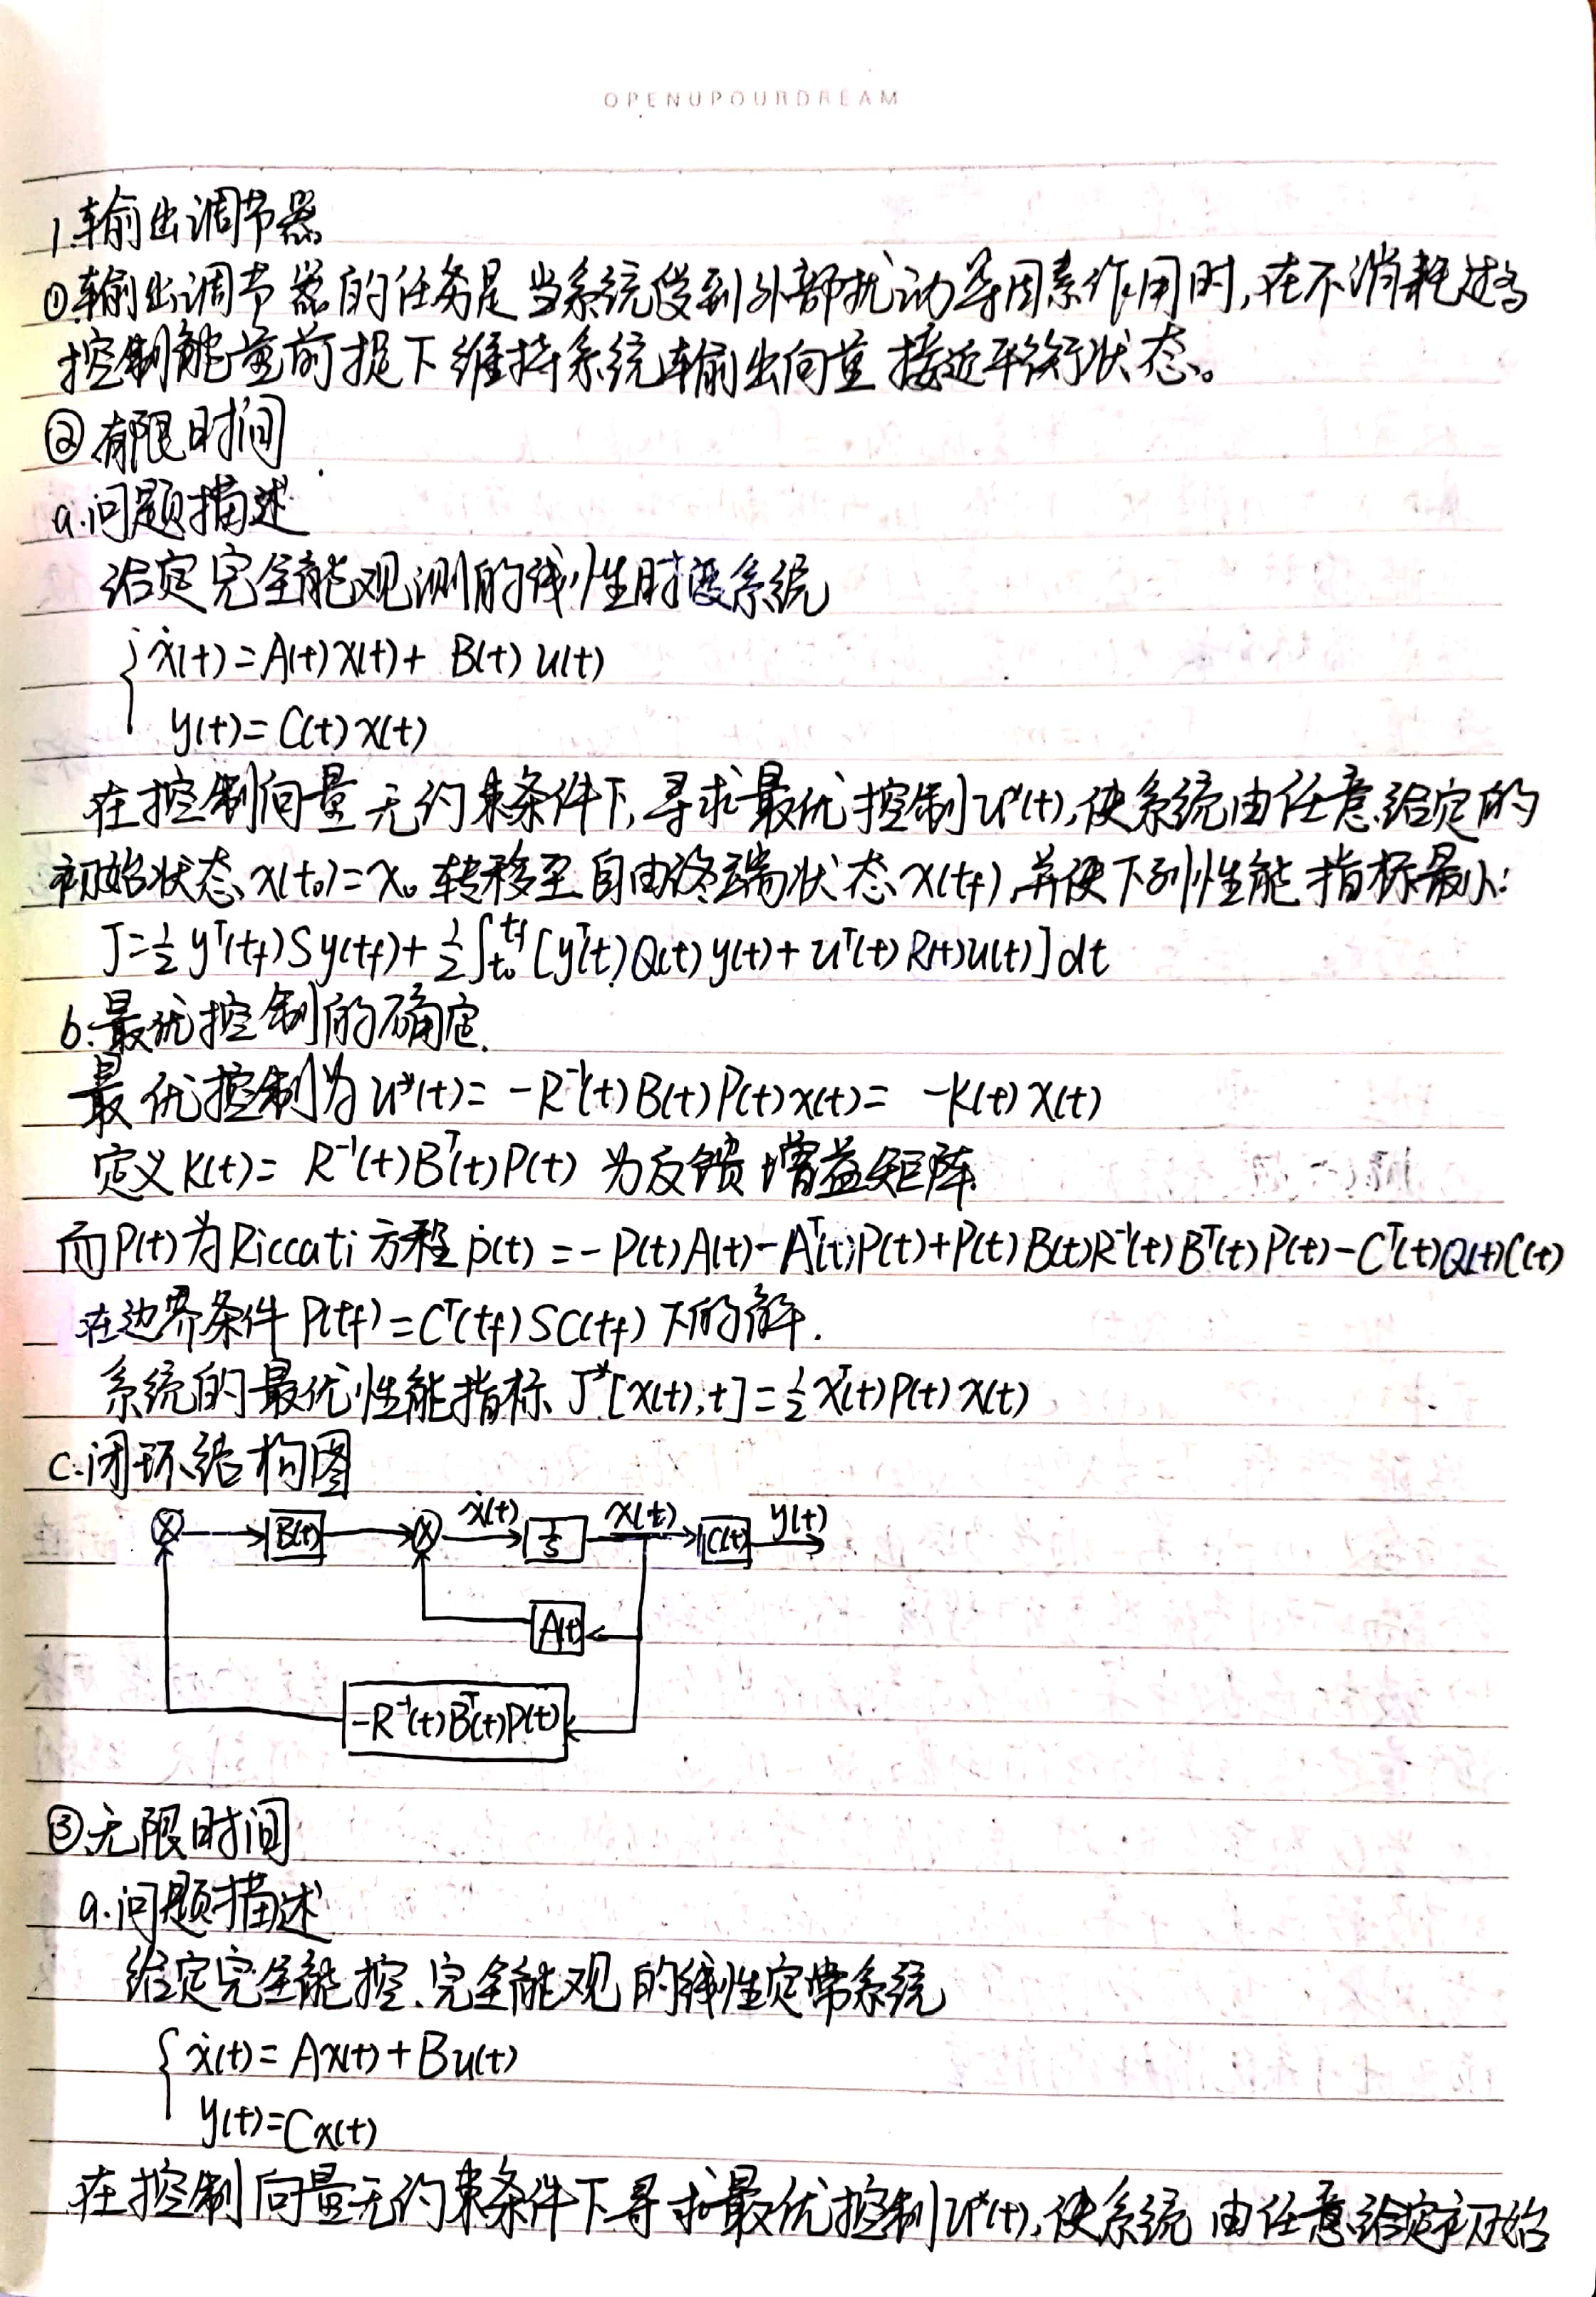 OPENUPOURDREAM
1.输出调节器
①输出调节器的任务是当系统受到外部扰动等因素作用时,在不消耗过多
控制能量前提下维持系统输出向量接近平衡状态。
②有限时间
a.问题描述
给定完全能观测的线性时变系统
ẋ(t)=A(t)x(t)+B(t)u(t)
y(t)=C(t)x(t)
在控制向量无约束条件下,寻求最优控制u*(t),使系统由任意给定的
初始状态x(t₀)=x₀转移至自由终端状态x(t_f),并使下列性能指标最小:
J=½yᵀ(t_f)Sy(t_f)+½∫_{t₀}^{t_f}[yᵀ(t)Q(t)y(t)+uᵀ(t)R(t)u(t)]dt
b.最优控制的确定.
最优控制为u*(t)=-R⁻¹(t)B(t)P(t)x(t)=-K(t)x(t)
定义K(t)=R⁻¹(t)Bᵀ(t)P(t)为反馈增益矩阵
而P(t)为Riccati方程ṗ(t)=-P(t)A(t)-Aᵀ(t)P(t)+P(t)B(t)R⁻¹(t)Bᵀ(t)P(t)-Cᵀ(t)Q(t)C(t)
在边界条件P(t_f)=Cᵀ(t_f)SC(t_f)下的解.
系统的最优性能指标J*[x(t),t]=½xᵀ(t)P(t)x(t)
c.闭环结构图
B(t) ẋ(t) 1/s x(t) C(t) y(t)
A(t)
-R⁻¹(t)Bᵀ(t)P(t)
③无限时间
a.问题描述
给定完全能控、完全能观的线性定常系统
ẋ(t)=Ax(t)+Bu(t)
y(t)=Cx(t)
在控制向量无约束条件下寻求最优控制u*(t),使系统由任意给定初始